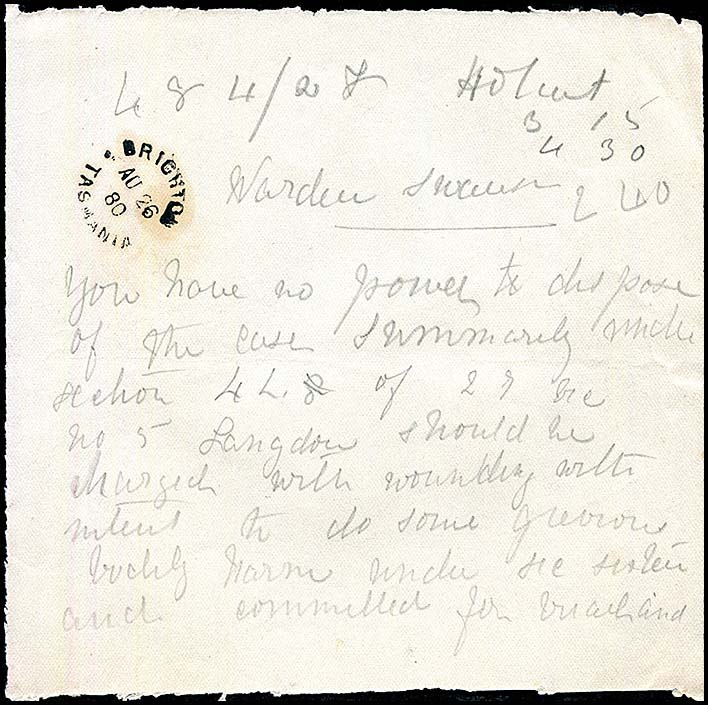 4 8 4/28 Hobart
3 15
4 30
BRIGHTON
AU 26
80
TASMANIA
Warden Swansea 2 40
You have no power to dispose
of the case summarily under
section 44 of 27 vic
no 5 Langdon should be
charged with wounding with
intent to do some grevious
bodily harm under sec sixteen
and committed for trial and